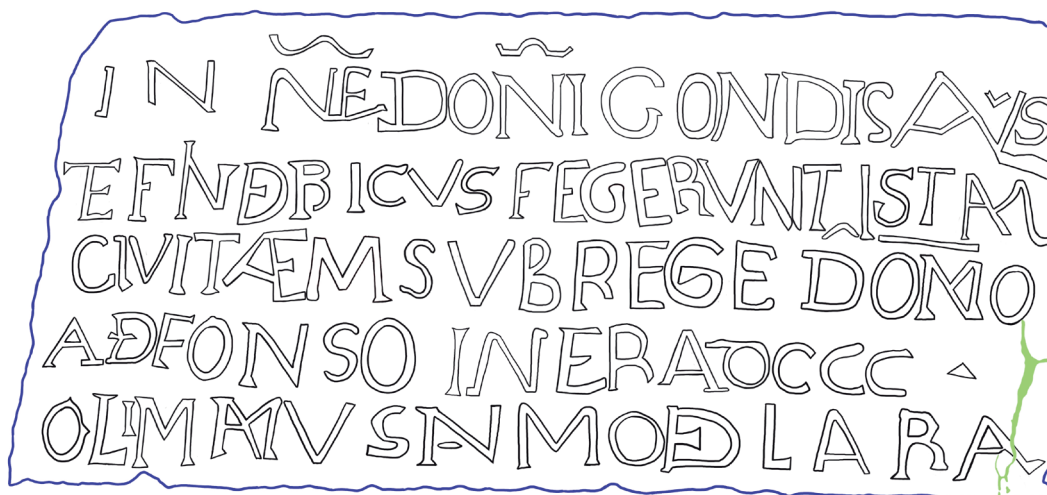 IN N̄E DOM̄NI GONDISALVS
TE FNDENBICVS FEGERVNT ISTAM
CIVITATEM SVB REGE DOMNO
ADEFONSO IN ERA DCCCC
OLIMMIVS IN MODE LARA